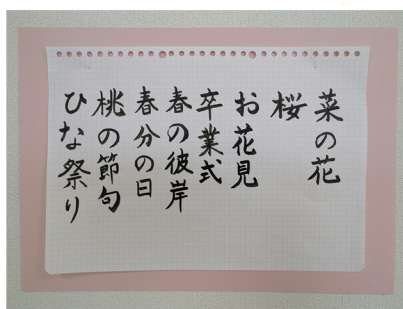 菜の花
桜
お花見
卒業式
春の彼岸
春分の日
桃の節句
ひな祭り